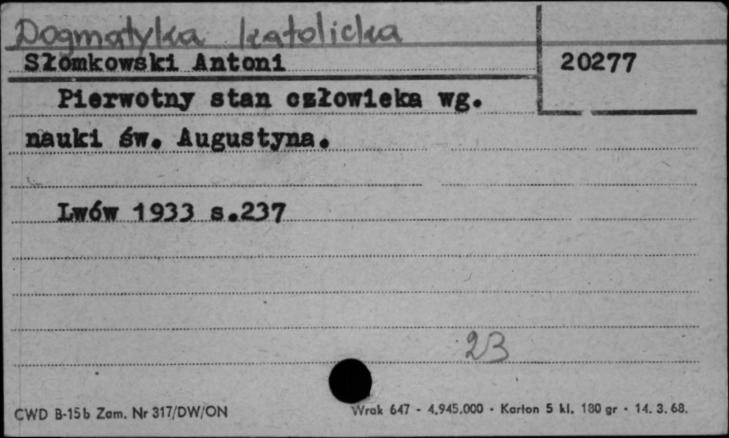 Dogmatyka katolicka
Słomkowski Antoni
20277
Pierwotny stan człowieka wg.
nauki św. Augustyna.
Lwów 1933 s.237
23
CWD B-15b Zam. Nr 317/DW/ON
Wrak 647 - 4.945.000 - Karton 5 kl. 180 gr - 14. 3. 68.